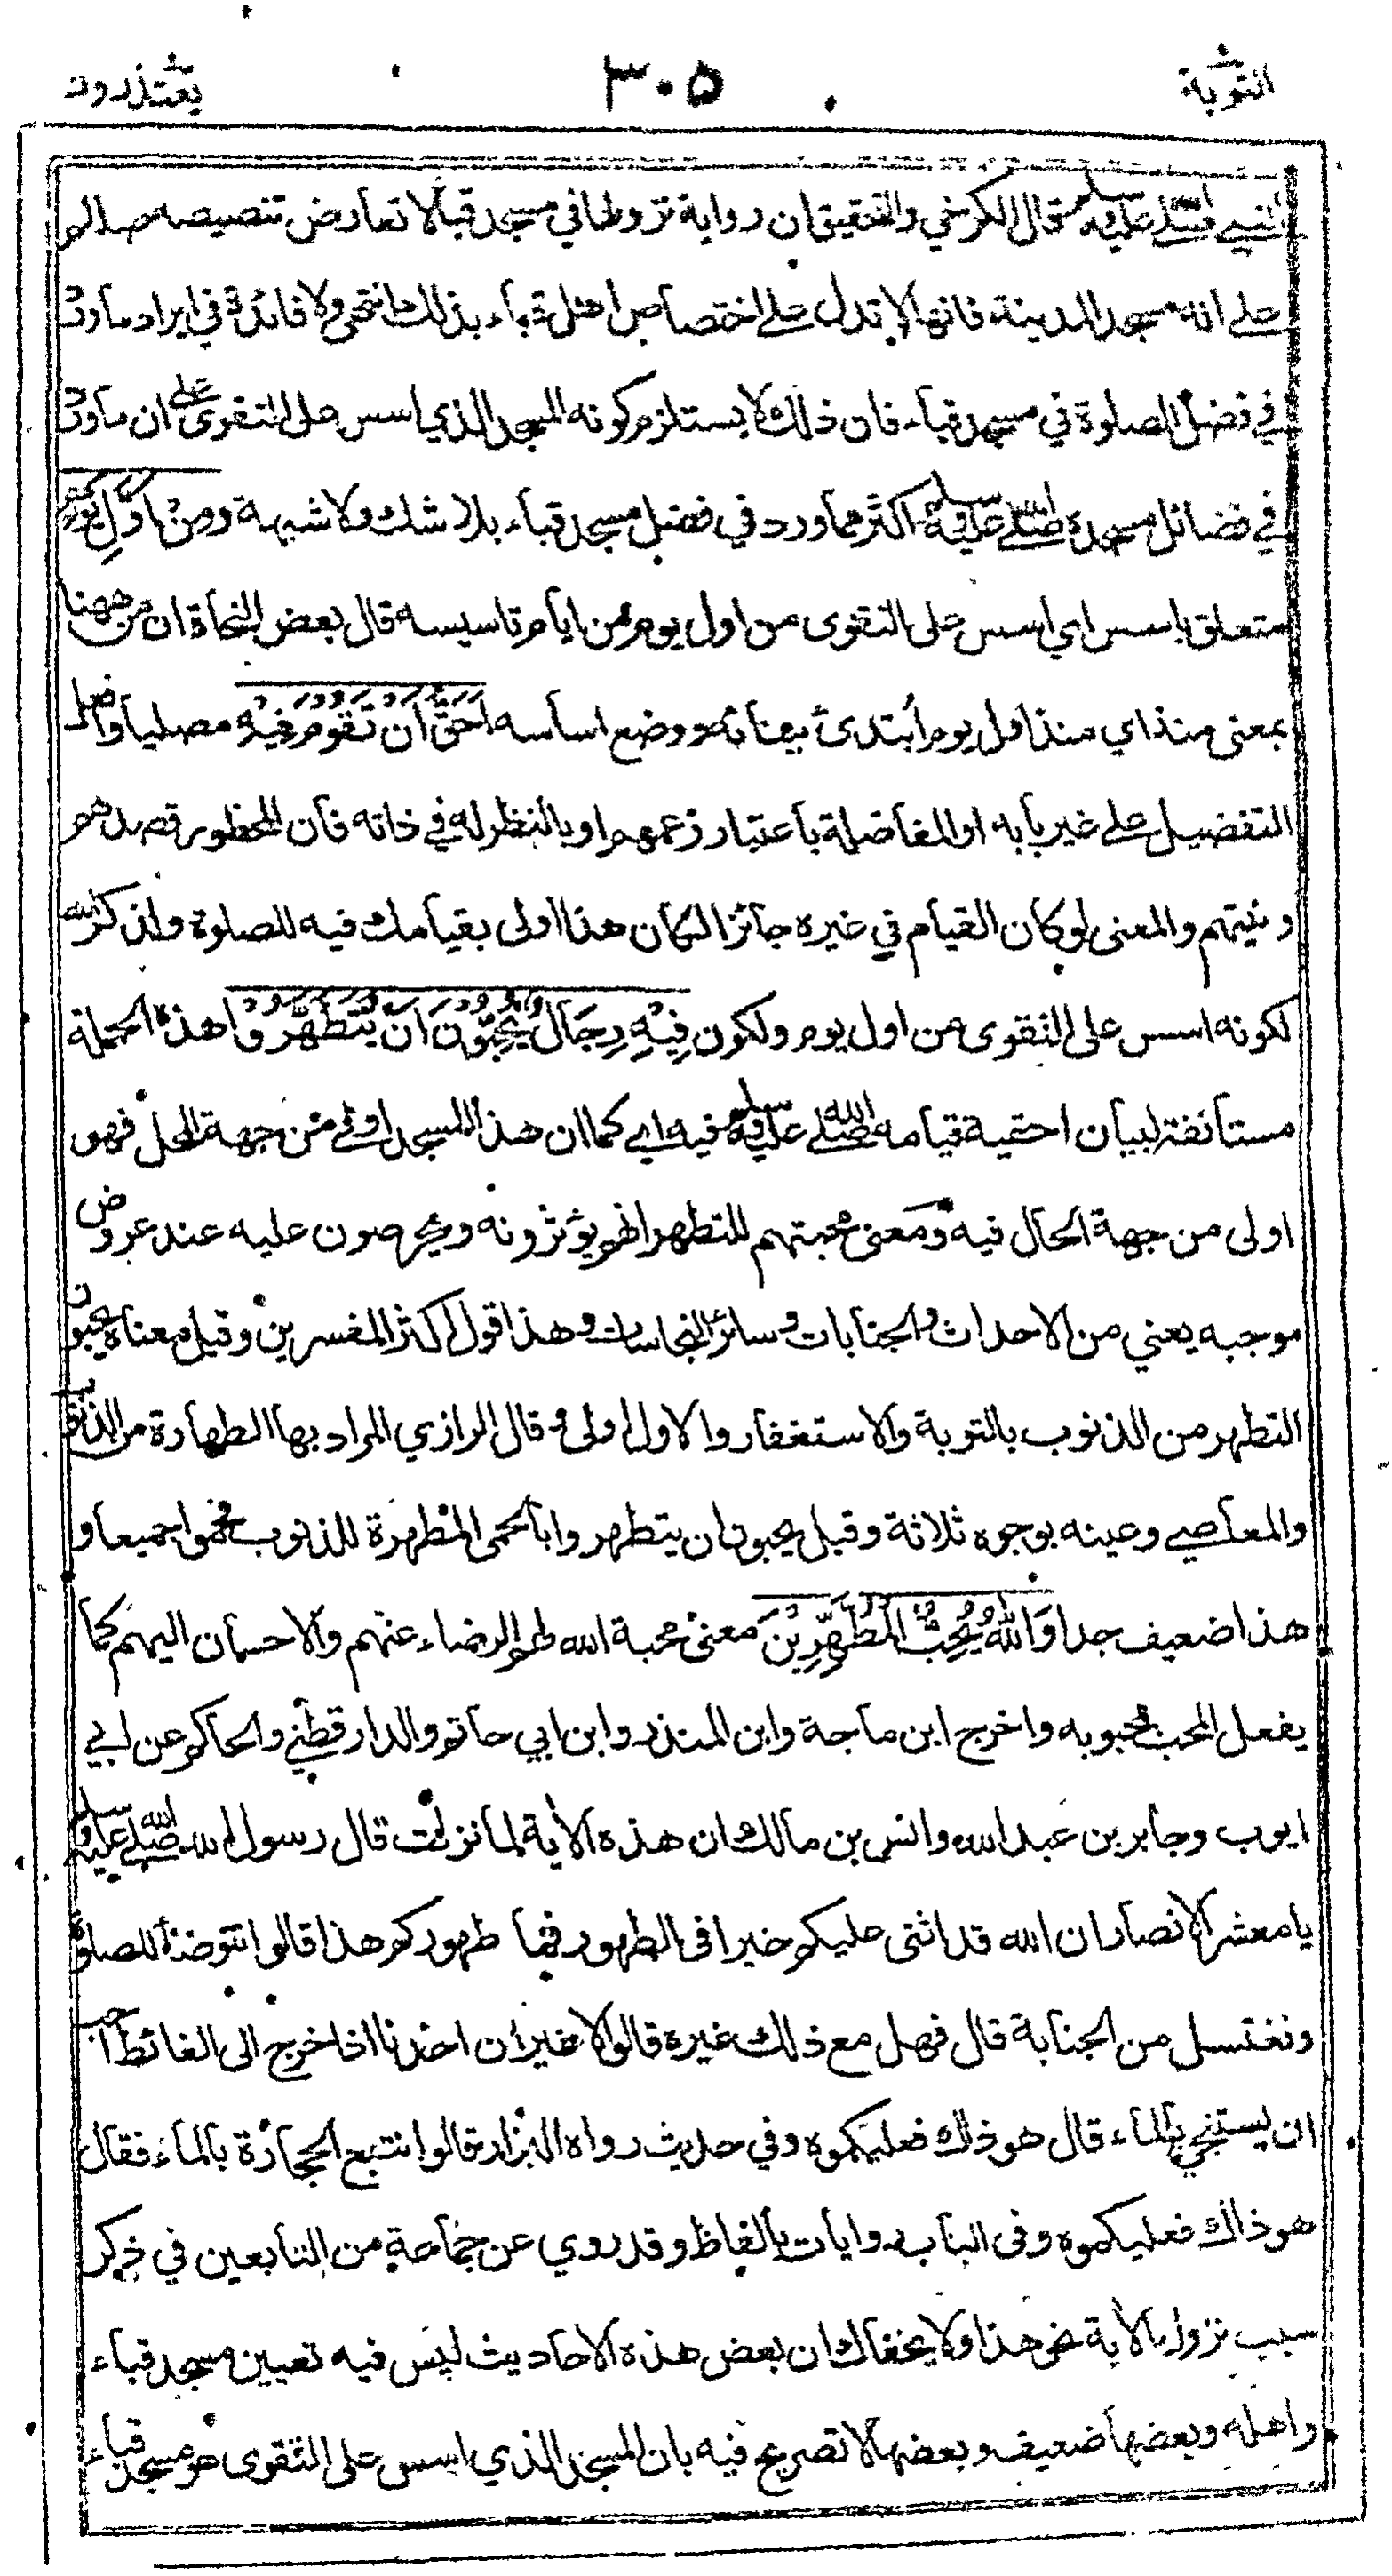 التوبة ٣٠٥ يعتذرون
النبي صلى الله عليه وسلم قال الكرخي والتحقيق ان رواية نزولها في مسجد قبا لا تعارض تنصيصه صللم
على انه مسجد المدينة فانها لا تدل على اختصاص اهل قباء بذلك انتهى ولا فائدة في ايراد ما ورد
في فضل الصلوة في مسجد قباء فان ذلك لا يستلزم كونه المسجد الذي اسس على التقوى على ان ما ورد
في فضائل مسجده صلى الله عليه وسلم اكثر مما ورد في فضل مسجد قباء بلا شك ولا شبهة ومِنْ اَوَّلِ يَوْمٍ
متعلق باسس اي اسس على التقوى من اول يوم من ايام تاسيسه قال بعض النحاة ان من ههنا
بمعنى منذ اي منذ اول يوم اُبتدئ بينائه ووضع اساسه اَحَقُّ اَنْ تَقُوْمَ فِيْهِ مصليا وافعل
التفضيل على غير بابه او المفاضلة باعتبار زعمهم او بالنظر له في ذاته فان المحظور قصدهم
ونيتهم والمعنى لو كان القيام في غيره جائزا لكان هذا اولى بقيامك فيه للصلوة ولذكر الله
لكونه اسس على التقوى من اول يوم ولكون فِيْهِ رِجَالٌ يُحِبُّوْنَ اَنْ يَّتَطَهَّرُوْا هذه الجملة
مستانفة لبيان احقية قيامه صلى الله عليه وسلم فيه اي كما ان هذا المسجد اولى من جهة المحل فهو
اولى من جهة الحال فيه ومعنى محبتهم للتطهر انهم يؤثرونه ويحرصون عليه عند عروض
موجبه يعني من الاحداث والجنابات وسائر النجاسات وهذا قول اكثر المفسرين وقيل معناه يحبون
التطهر من الذنوب بالتوبة والاستغفار والاول اولى وقال الرازي المراد بها الطهارة من الذنوب
والمعاصي وعينه بوجوه ثلاثة وقيل يحبون ان يتطهروا بالحمى المطهرة للذنوب فحموا جميعا و
هذا ضعيف جدا وَاللّٰهُ يُحِبُّ الْمُطَّهِّرِيْنَ معنى محبة الله لهم الرضاء عنهم والاحسان اليهم كما
يفعل المحب بمحبوبه واخرج ابن ماجة وابن المنذر وابن ابي حاتم والدارقطني والحاكم عن ابي
ايوب وجابر بن عبد الله وانس بن مالك ان هذه الاية لما نزلت قال رسول الله صلى الله عليه وسلم
يا معشر الانصار ان الله قد اثنى عليكم خيرا في الطهور فما طهوركم هذا قالوا نتوضأ للصلوة
ونغتسل من الجنابة قال فهل مع ذلك غيره قالوا لا غير ان احدنا اذا خرج الى الغائط احب
ان يستنجي بالماء قال هو ذاك فعليكموه وفي حديث رواه البزار قالوا نتبع الحجارة بالماء فقال
هو ذاك فعليكموه وفي الباب روايات بالفاظ وقد روي عن جماعة من التابعين في ذكر
سبب نزول الاية نحو هذا ولا يخفاك ان بعض هذه الاحاديث ليس فيه تعيين مسجد قباء
واهله وبعضها ضعيف وبعضها لا تصريح فيه بان المسجد الذي اسس على التقوى هو مسجد قباء